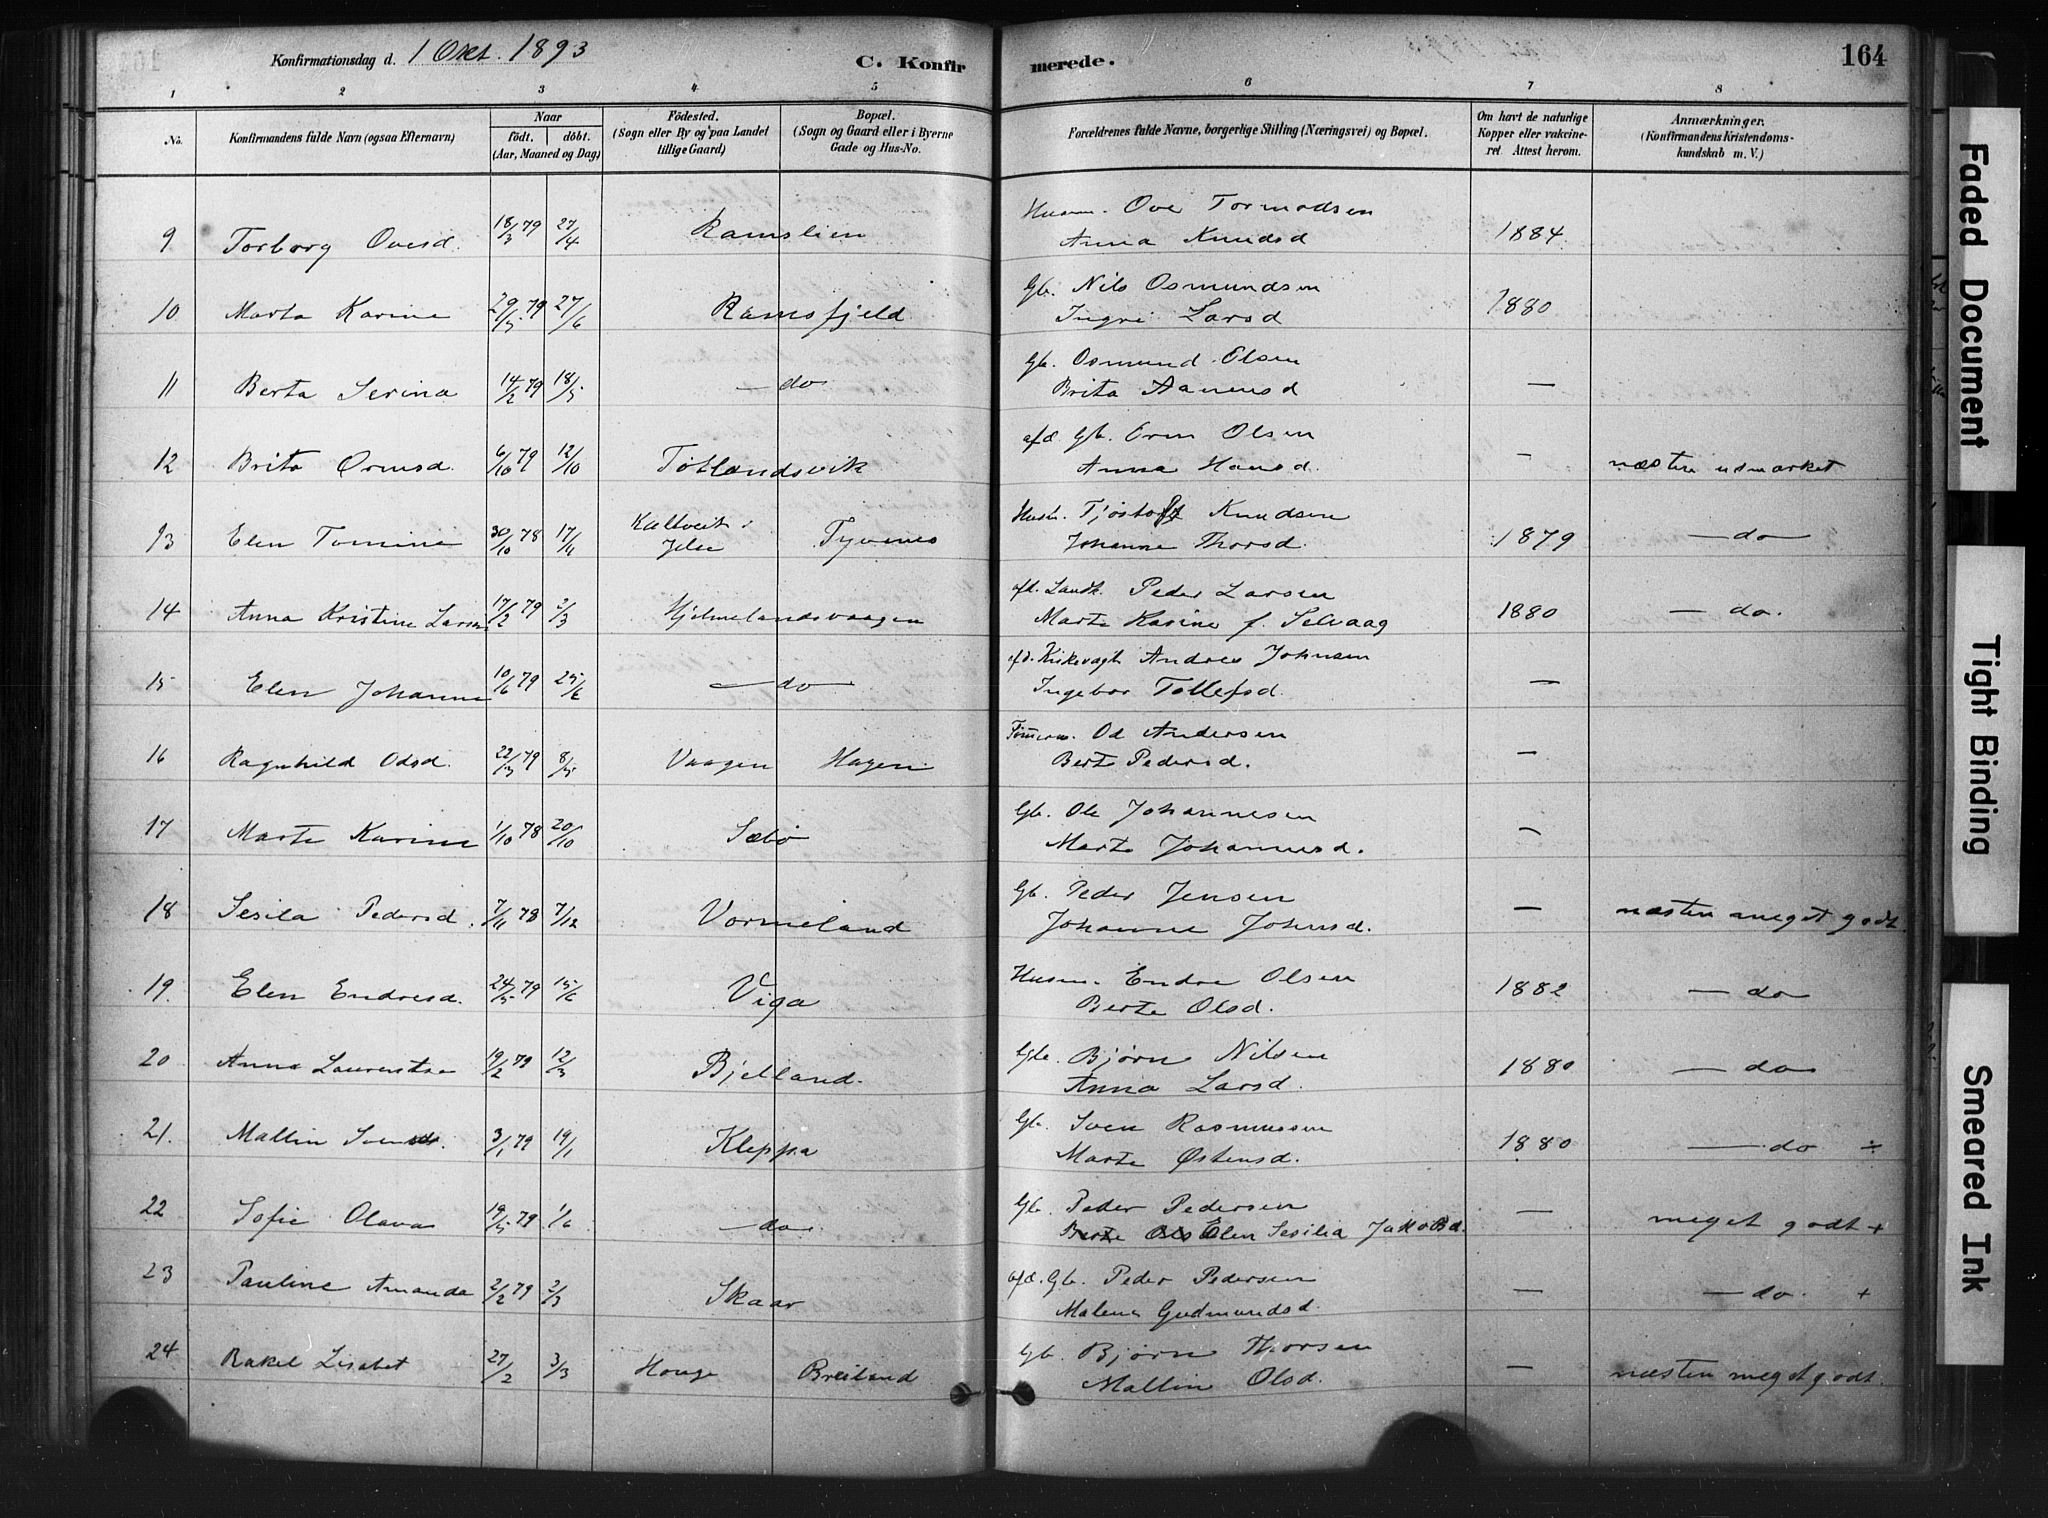 Konfirmationsdag d. 1 Okt. 1893
C. Konfirmerede.
164
1 2 3 4 5 6 7 8
No. Konfirmandens fulde Navn (ogsaa Efternavn) Naar födt. döbt. (Aar, Maaned og Dag) Födested. (Sogn eller By og paa Landet tillige Gaard) Bopæl. (Sogn og Gaard eller i Byerne Gade og Hus-No. Forældrenes fulde Navne, borgerlige Stilling (Næringsvei) og Bopæl. Om havt de naturlige Kopper eller vakcineret Attest herom. Anmærkninger. (Konfirmandens Kristendomskundskab m. V.)
9 Torborg Ovesd. 18/3 79 27/4 Ramslien Husm. Ove Tormodsen 1884.
Anna Knudsd
10 Marta Karine 29/5 79 27/6 Ramsfjeld Gb. Nils Osmundsen 1880
Ingri Larsd
11 Berta Serina 14/2 79 18/5 — do Gb. Osmund Elsen —
Brita Aanensd
12 Brita Ormsd. 6/10 79 12/10 Tøtlandsvik afd. Gb. Orm Olsen — næsten udmærket
Anna Hansd.
13 Elen Tomine 30/10 78 17/4 Kaltveit i Jelse Tyvenes Husm. Tjøstolf Knudsen 1879 — do
Johanne Thorsd.
14 Anna Kristine Larsen 17/2 79 2/3 Hjelmelandsvaagen afd. Landh. Peder Larsen 1880 — do.
Marte Karine f. Selvaag
15 Elen Johanne 10/6 79 25/6 — do afd. Kirkevagt Andres Johnsen —
Ingebor Tollefsd.
16 Ragnhild Odsd. 22/3 79 8/5 Vaagen Hagen Tømerm. Od Andersen —
Berte Pedersd.
17 Marte Karine 1/10 78 20/10 Sæbø Gb. Ole Johannesen —
Marte Johannesd.
18 Sesila Pedersd. 7/11 78 7/12 Vormeland Gb. Peder Jensen — næsten meget godt.
Johanne Johnsd.
19. Elen Endresd. 24/5 79 15/6 Viga Husm. Endre Olsen 1882 — do
Berte Olsd.
20 Anna Laurentse 19/2 79 12/3 Bjelland. Gb. Bjørn Nilsen 1880 — do
Anna Larsd.
21. Mallin Svends. 3/1 79 19/1 Kleppa Gb. Sven Rasmussen 1880 — do ÷
Marte Østensd.
22 Sofie Olava 19/5 79 1/6 — do. Gb. Peder Pedersen — meget godt +
Berte Ols Elen Sesilia Jakobsd.
23 Pauline Amanda 2/2 79 2/3 Skaar afd. Gb. Peder Pedersen — — do. +
Malena Gudmundsd.
24 Rakel Lisabet 27/2 3/3 Hauge Breiland Gb. Bjørn Thorsen — næsten meget godt.
Mallin Olsd.
Faded Document
Tight Binding
Smeared Ink